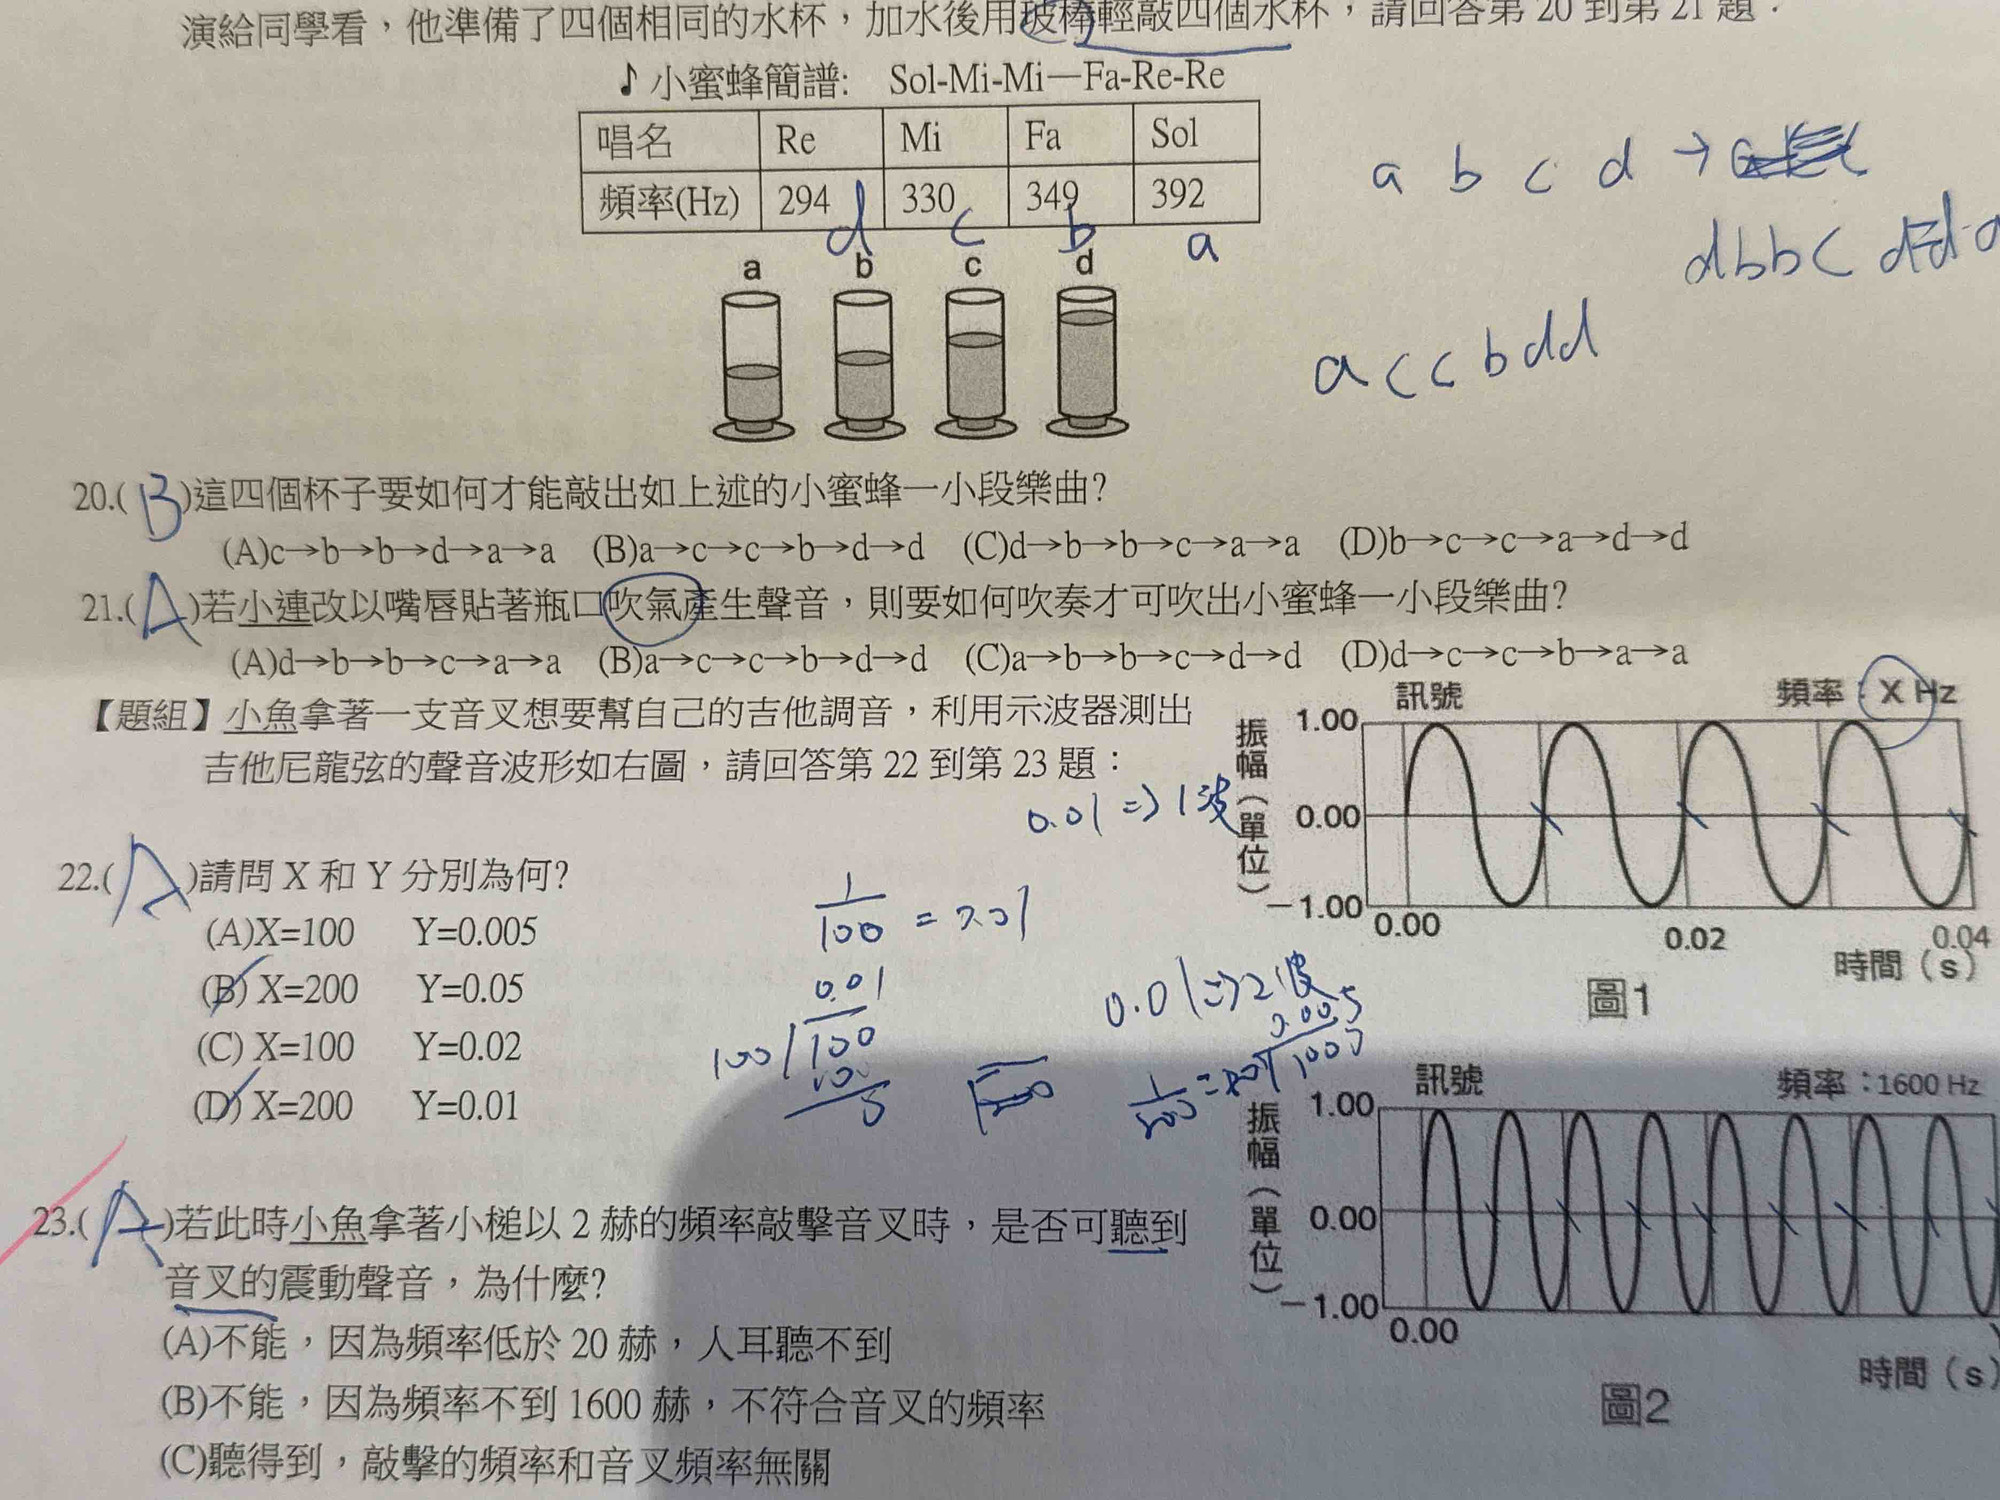 演給同學看，他準備了四個相同的水杯，加水後用玻棒輕敲四個水杯，請回答第 20 到第 21 題：
♪小蜜蜂簡譜: Sol-Mi-Mi—Fa-Re-Re
唱名 Re Mi Fa Sol
頻率(Hz) 294 330 349 392
d c b a
a b c d
a b c d →
dbbc
accbdd
20.(B)這四個杯子要如何才能敲出如上述的小蜜蜂一小段樂曲?
(A)c→b→b→d→a→a (B)a→c→c→b→d→d (C)d→b→b→c→a→a (D)b→c→c→a→d→d
21.(A)若小連改以嘴唇貼著瓶口吹氣產生聲音，則要如何吹奏才可吹出小蜜蜂一小段樂曲?
(A)d→b→b→c→a→a (B)a→c→c→b→d→d (C)a→b→b→c→d→d (D)d→c→c→b→a→a
【題組】小魚拿著一支音叉想要幫自己的吉他調音，利用示波器測出
吉他尼龍弦的聲音波形如右圖，請回答第 22 到第 23 題：
訊號 頻率：X Hz
振幅（單位）
1.00
0.00
−1.00
0.00 0.02 0.04
時間（s）
圖1
0.01 => 1波
22.(A)請問 X 和 Y 分別為何?
(A)X=100 Y=0.005
(B) X=200 Y=0.05
(C) X=100 Y=0.02
(D) X=200 Y=0.01
1/100 = 0.01
0.01
100 100
0.01 => 2波
0.005
1000
訊號 頻率：1600 Hz
振幅（單位）
1.00
0.00
−1.00
0.00
時間（s）
圖2
23.(A)若此時小魚拿著小槌以 2 赫的頻率敲擊音叉時，是否可聽到
音叉的震動聲音，為什麼?
(A)不能，因為頻率低於 20 赫，人耳聽不到
(B)不能，因為頻率不到 1600 赫，不符合音叉的頻率
(C)聽得到，敲擊的頻率和音叉頻率無關